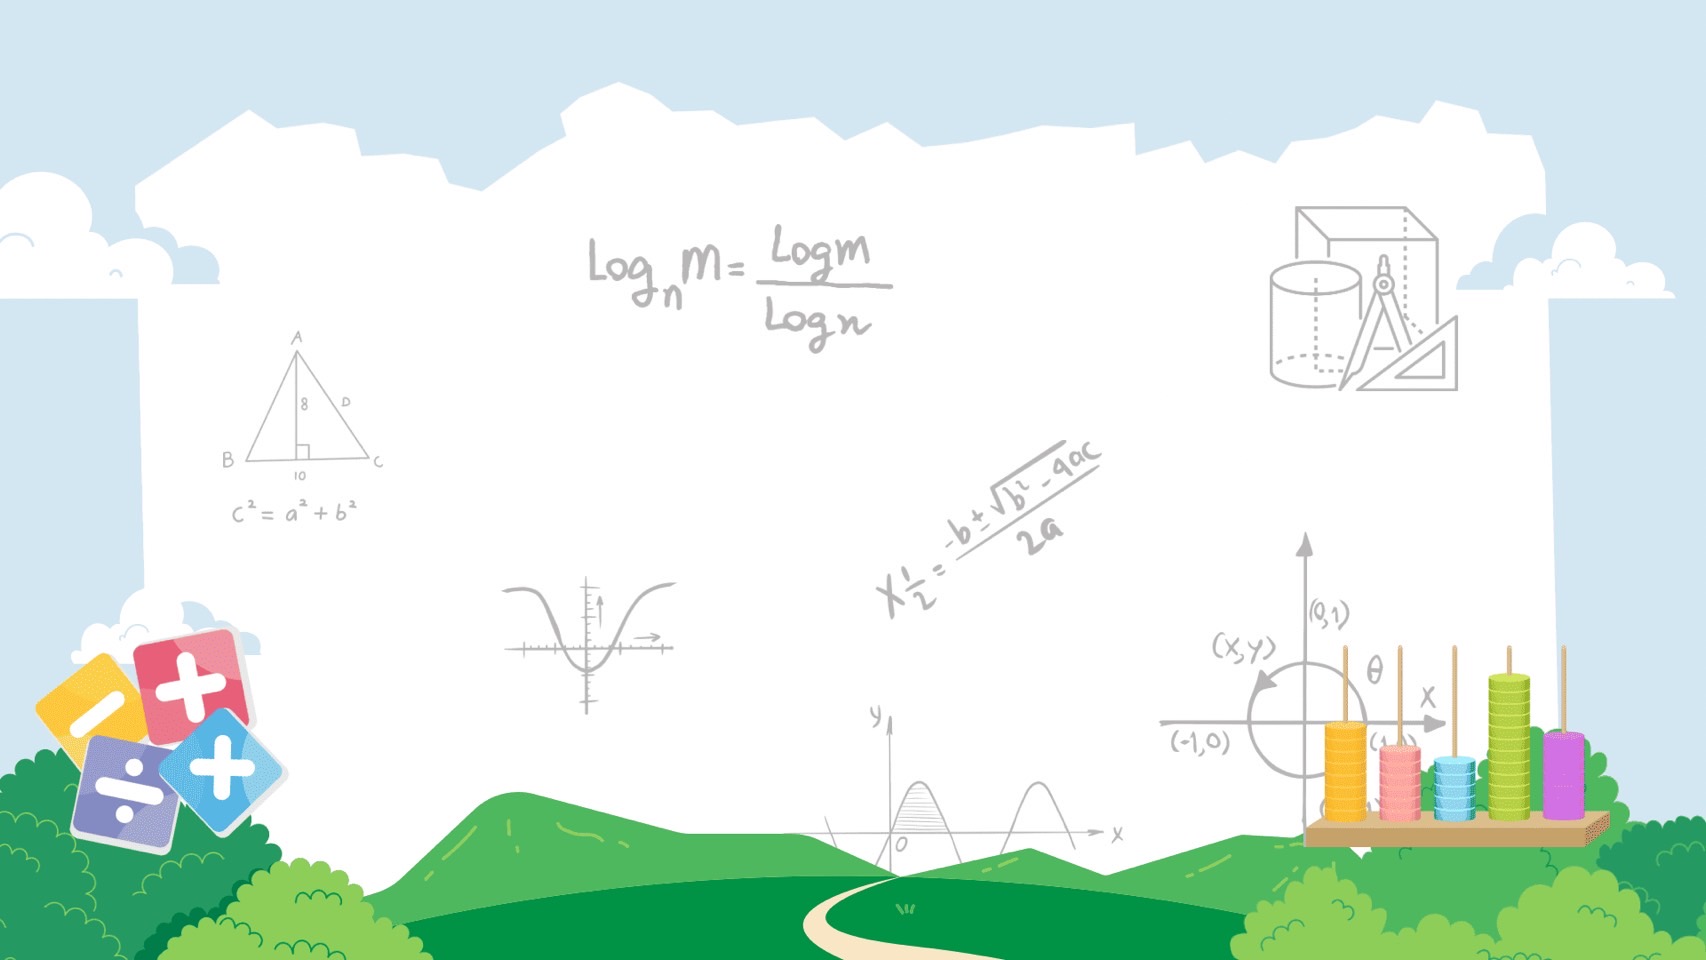 Log_n M = Log m / Log n
A
8 D
B C
10
c² = a² + b²
X 1/2 = -b ± √b² - 4ac / 2a
(0,1)
(x,y) θ
X
(-1,0)
y
O X